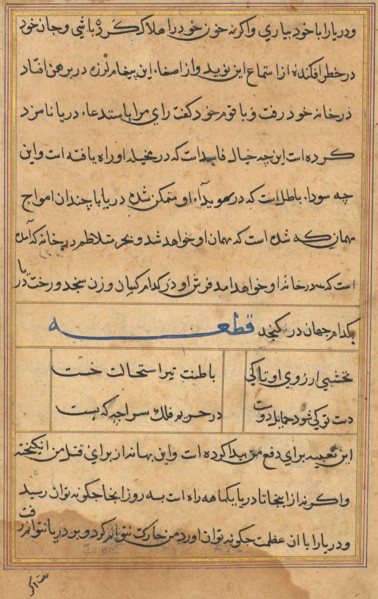 و دریا را با خود بیاری و اگر نه خون خود را هلاک کرده باشی و جان خود
در خطر افکنده از استماع این نوید و از اصغاء این پیغام لرزه در برهمن افتاد
در خانه خود رفت و با قوم خود گفت رای مرا باستدعاء دریا نامزد
کرده است این چه خیال فاسد است که در مخیله او راه یافته است و این
چه سوداء باطل است که در سویداء او متمکن شده دریا با چندان امواج
مهمان که شده است که مهمان او خواهد شد و بحر متلاطم در خانه که آمده
است که در خانه او خواهد آمد فرش او در کدام کپان وزن سنجد و رخت دریا
بکدام جهان در گنجد قطعه
نخشبی آرزوی او تا کی
باطنت تیر استحالت خست
دست تو کی شود حمایل دوست
در حریم فلک سراچه که بست
این تعبیه برای دفع من پیدا کرده است و این بهانه از برای قتل من انگیخته
و اگر نه از اینجا تا دریا یکماهه راه است بسه روز آنجا چگونه توان رسید
و دریا را با آن عظمت چگونه توان آورد من حرکت نتوانم کرد و بر دریا نتوانم رفت